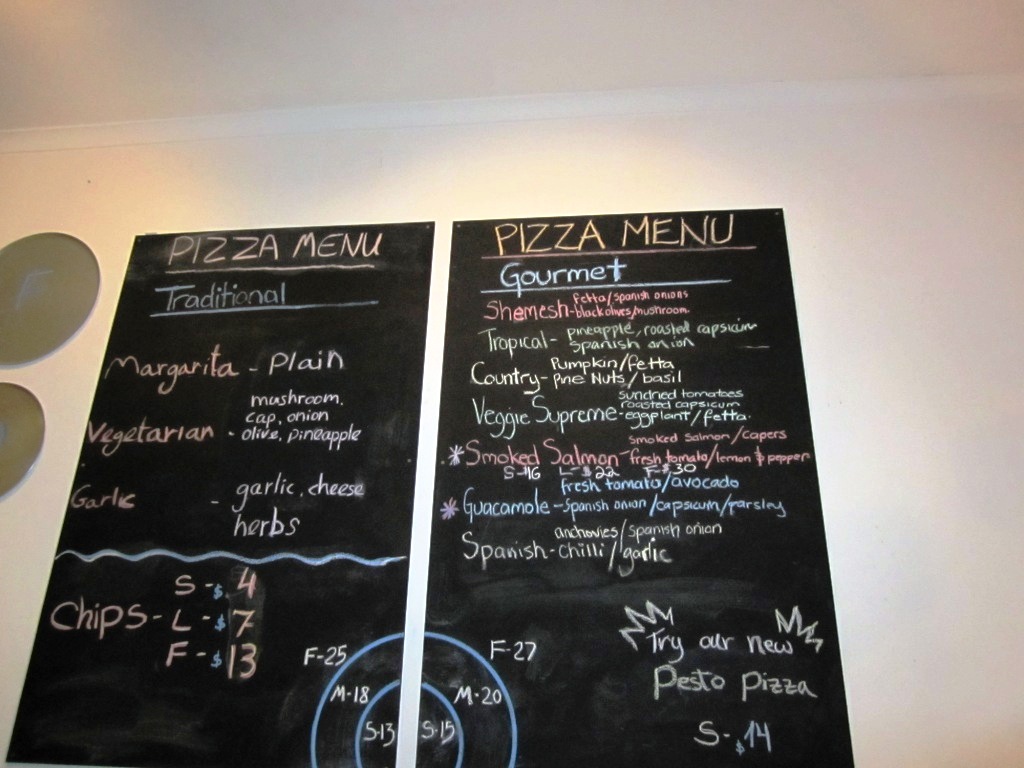 PIZZA MENU
Traditional
Margarita - Plain
mushroom,
cap, onion
Vegetarian - olive, pineapple
Garlic - garlic, cheese
herbs
Chips - S - $4
L - $7
F - $13
F-25
M-18
S-13
PIZZA MENU
Gourmet
Fetta/Spanish onions
Shemesh - black olives/mushroom.
Tropical - pineapple, roasted capsicum
Spanish onion
Pumpkin/fetta
Country - Pine Nuts/basil
sundried tomatoes
roasted capsicum
Veggie Supreme - eggplant/fetta.
smoked salmon/capers
* Smoked Salmon - fresh tomato/lemon & pepper
S-$16 L-$22 F-$30
fresh tomato/avocado
* Guacamole - Spanish onion/capsicum/parsley
anchovies/Spanish onion
Spanish - chilli/garlic
F-27
M-20
S-15
Try our new
Pesto Pizza
S-$14
F